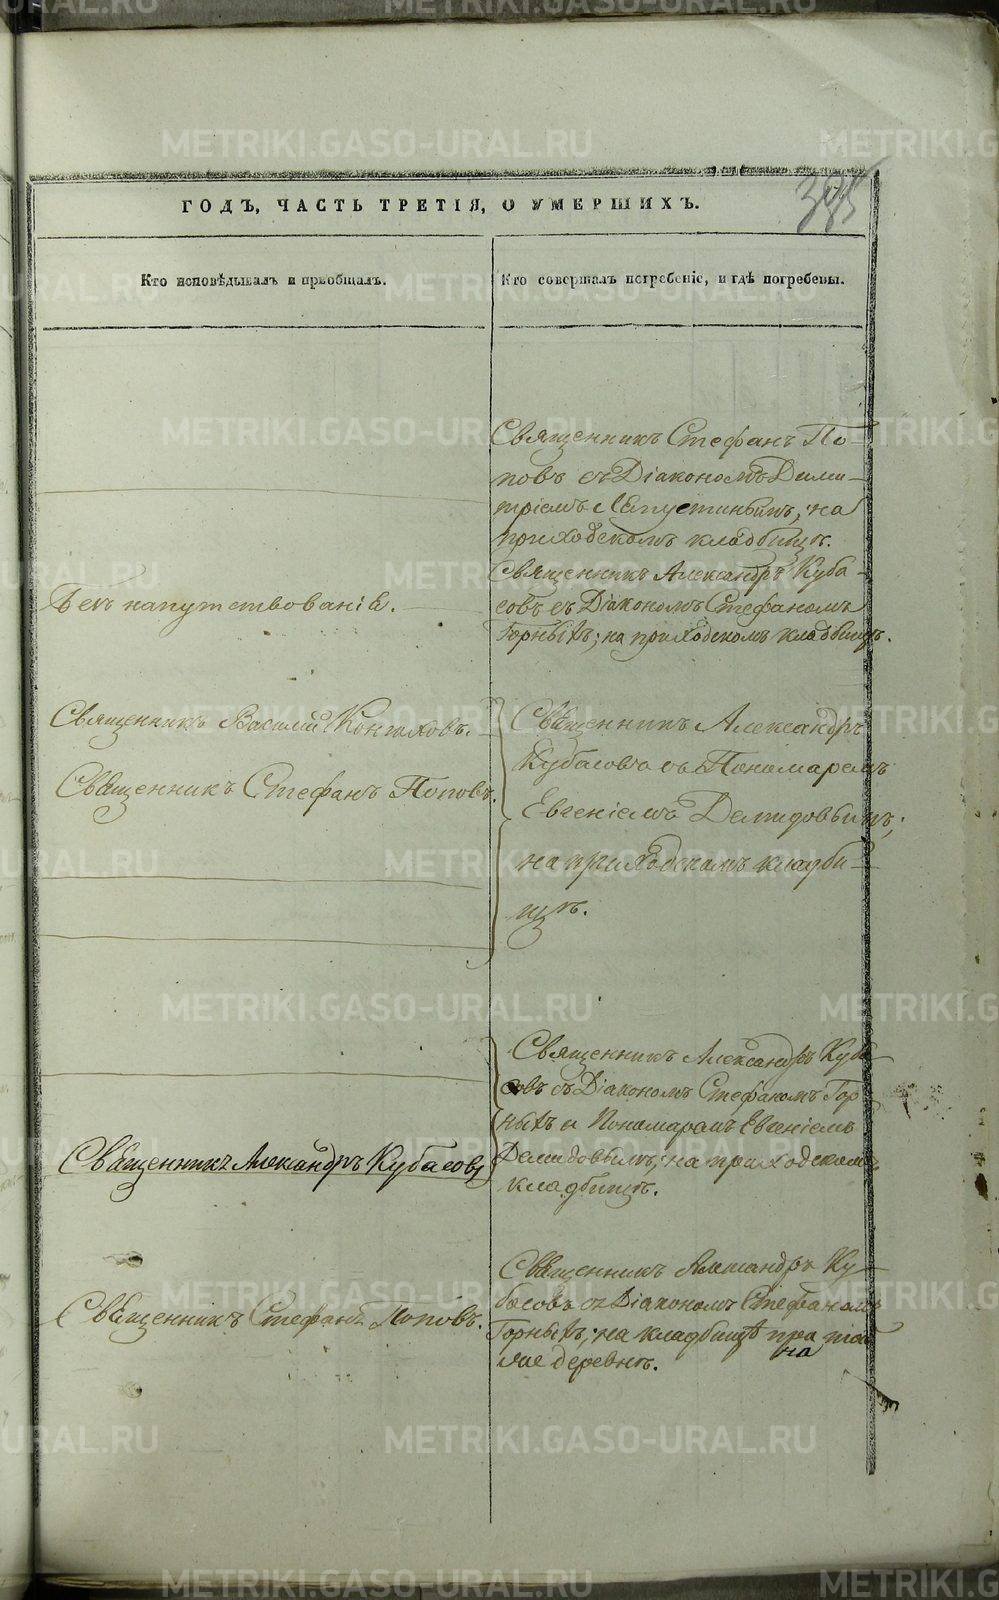 385
ГОДЪ, ЧАСТЬ ТРЕТІЯ, О УМЕРШИХЪ.
Кто исповѣдывалъ и пріобщалъ.
Кто совершалъ погребеніе, и гдѣ погребены.
Священникъ Стефанъ По-
повъ съ Діакономъ Дими-
тріемъ Капустинымъ; на
приходскомъ кладбищѣ.
Безъ напутствованія.
Священникъ Александръ Куба-
совъ съ Діакономъ Стефаномъ
Горныхъ; на приходскомъ кладбищѣ.
Священникъ Василій Конюховъ.
Священникъ Стефанъ Поповъ.
Священникъ Александръ
Кубасовъ съ Пономаремъ
Евгеніемъ Демидовымъ;
на приходскомъ кладби-
щѣ.
Священникъ Александръ Кубасовъ
Священникъ Александръ Куба-
совъ съ Діакономъ Стефаномъ Гор
ныхъ и Пономаремъ Евгеніемъ
Демидовымъ; на приходскомъ
кладбищѣ.
Священникъ Стефанъ Поповъ.
Священникъ Александръ Ку-
басовъ съ Діакономъ Стефаномъ
Горныхъ; на кладбищѣ при
деревнѣ.
METRIKI.GASO-URAL.RU